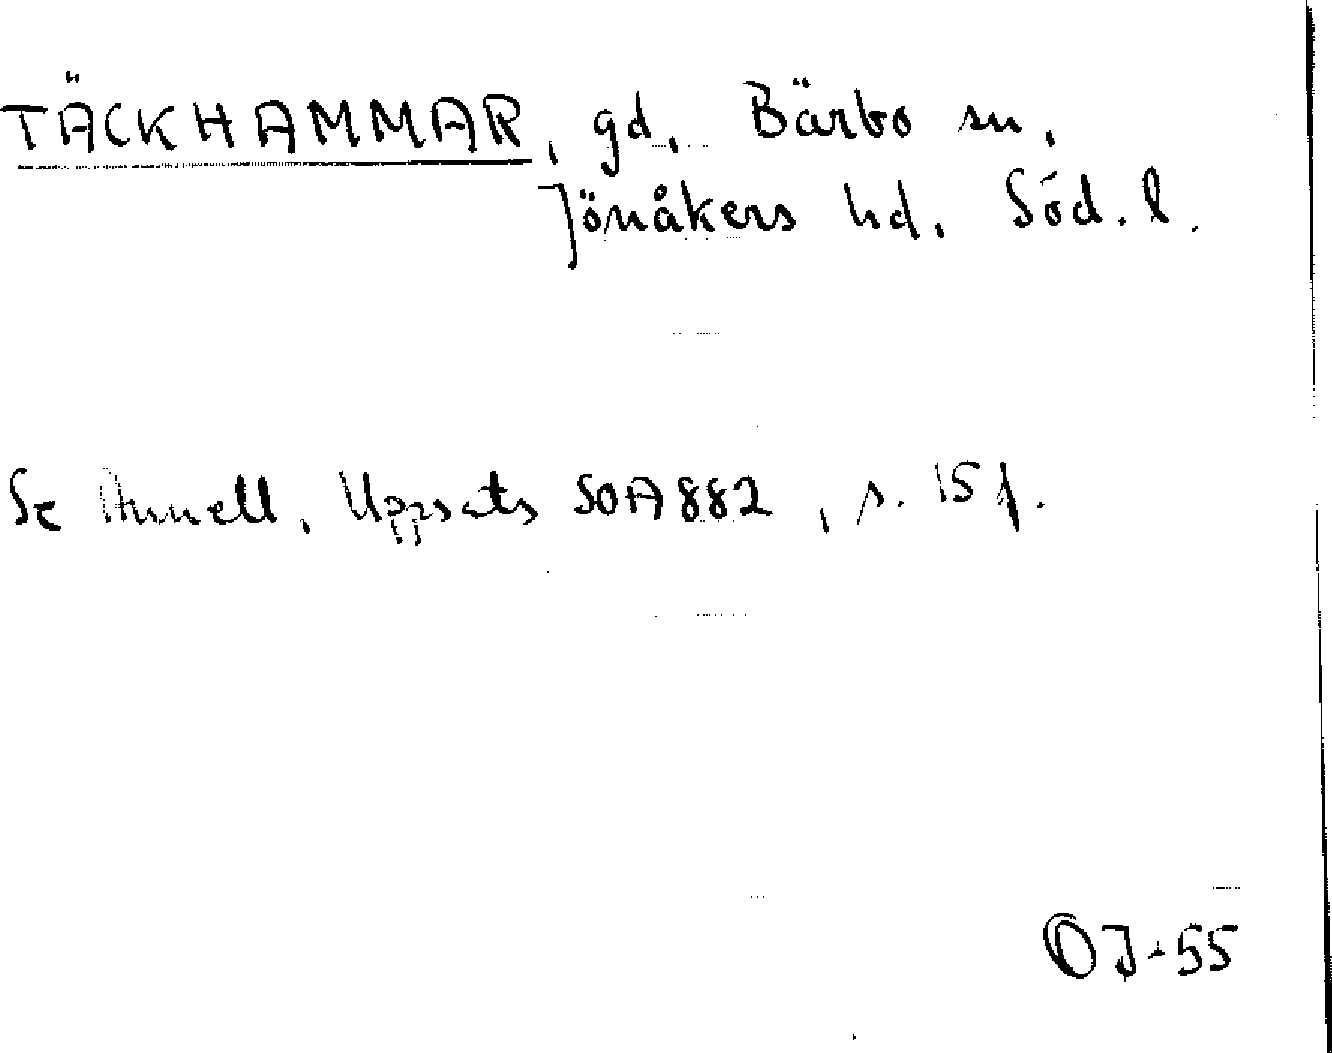 TÄCKHAMMAR, gd, Bärbo sn,
Jönåkers hd, Söd. l.
Se Annell, Uppsats SOA 882, s. 15 f.
OJ-55